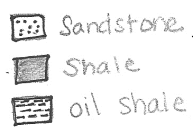 Sandstone
Shale
oil shale